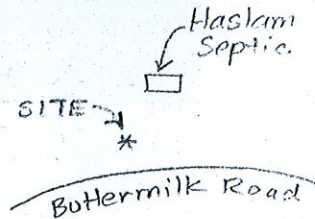 Haslam
Septic.
SITE
*
Buttermilk Road